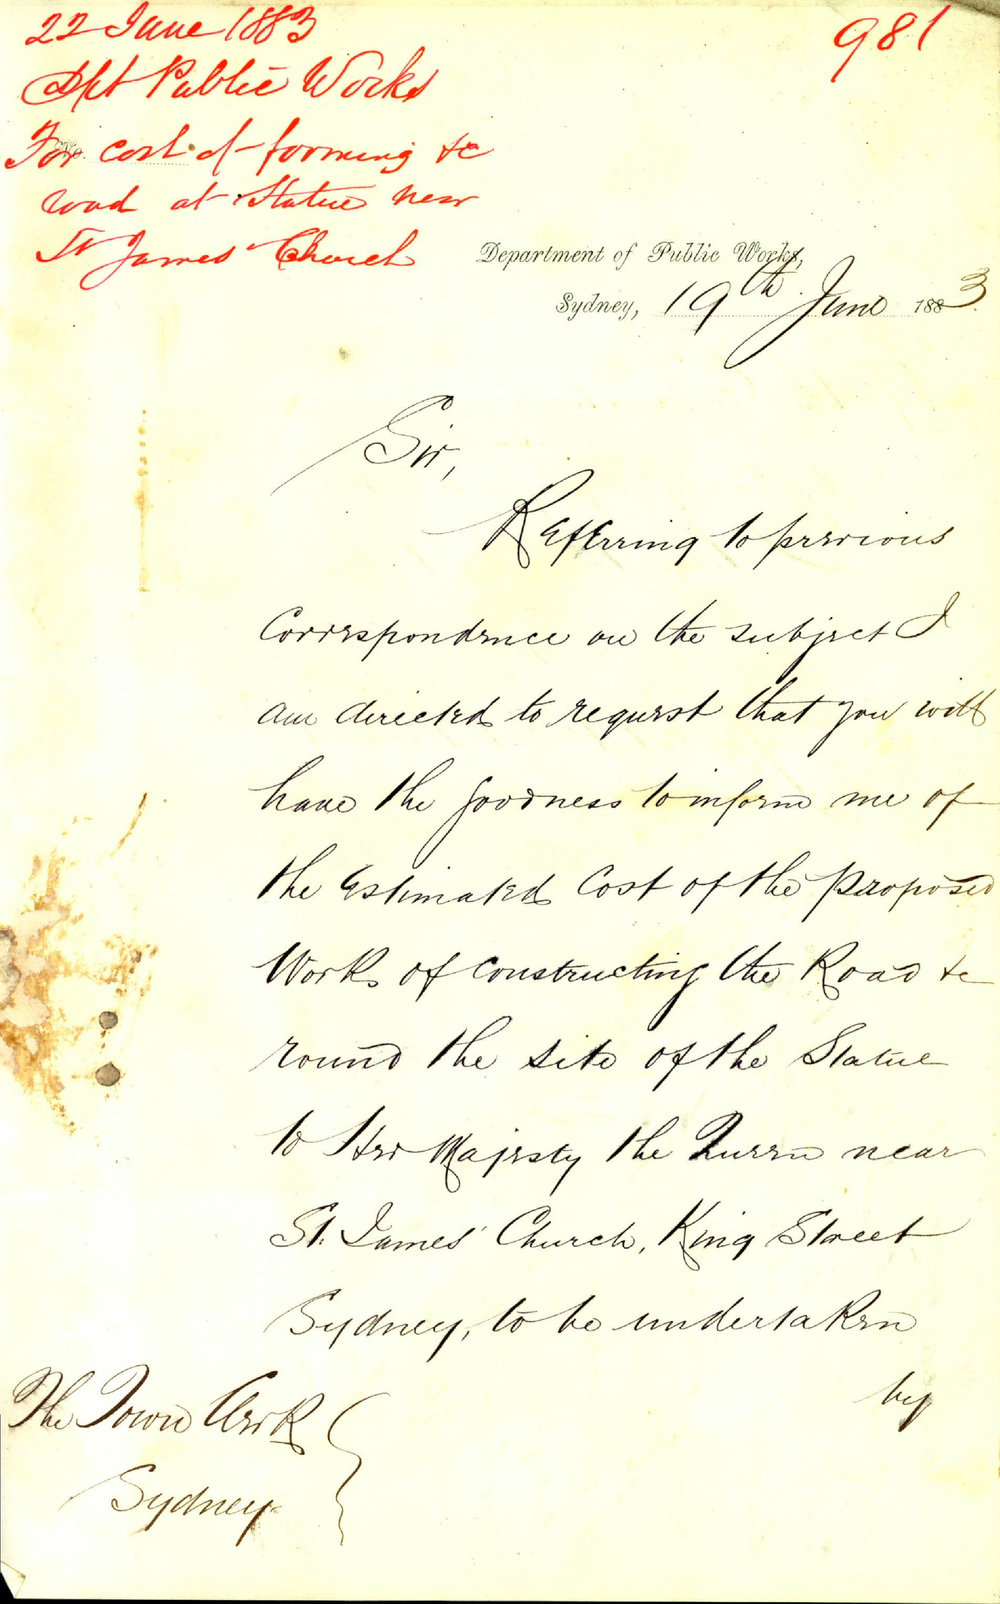 22 June 1883
981
Dpt Public Works
For cost of forming &c
road at Statue near
St James Church
Department of Public Works,
Sydney, 19th June 1883.
Sir,
Referring to previous
Correspondence on the subject I
am directed to request that you will
have the goodness to inform me of
the Estimated Cost of the proposed
Work of constructing the Road &c
round the site of the Statue
to Her Majesty the Queen near
St. James' Church, King Street
Sydney, to be undertaken
by
The Town Clerk
Sydney